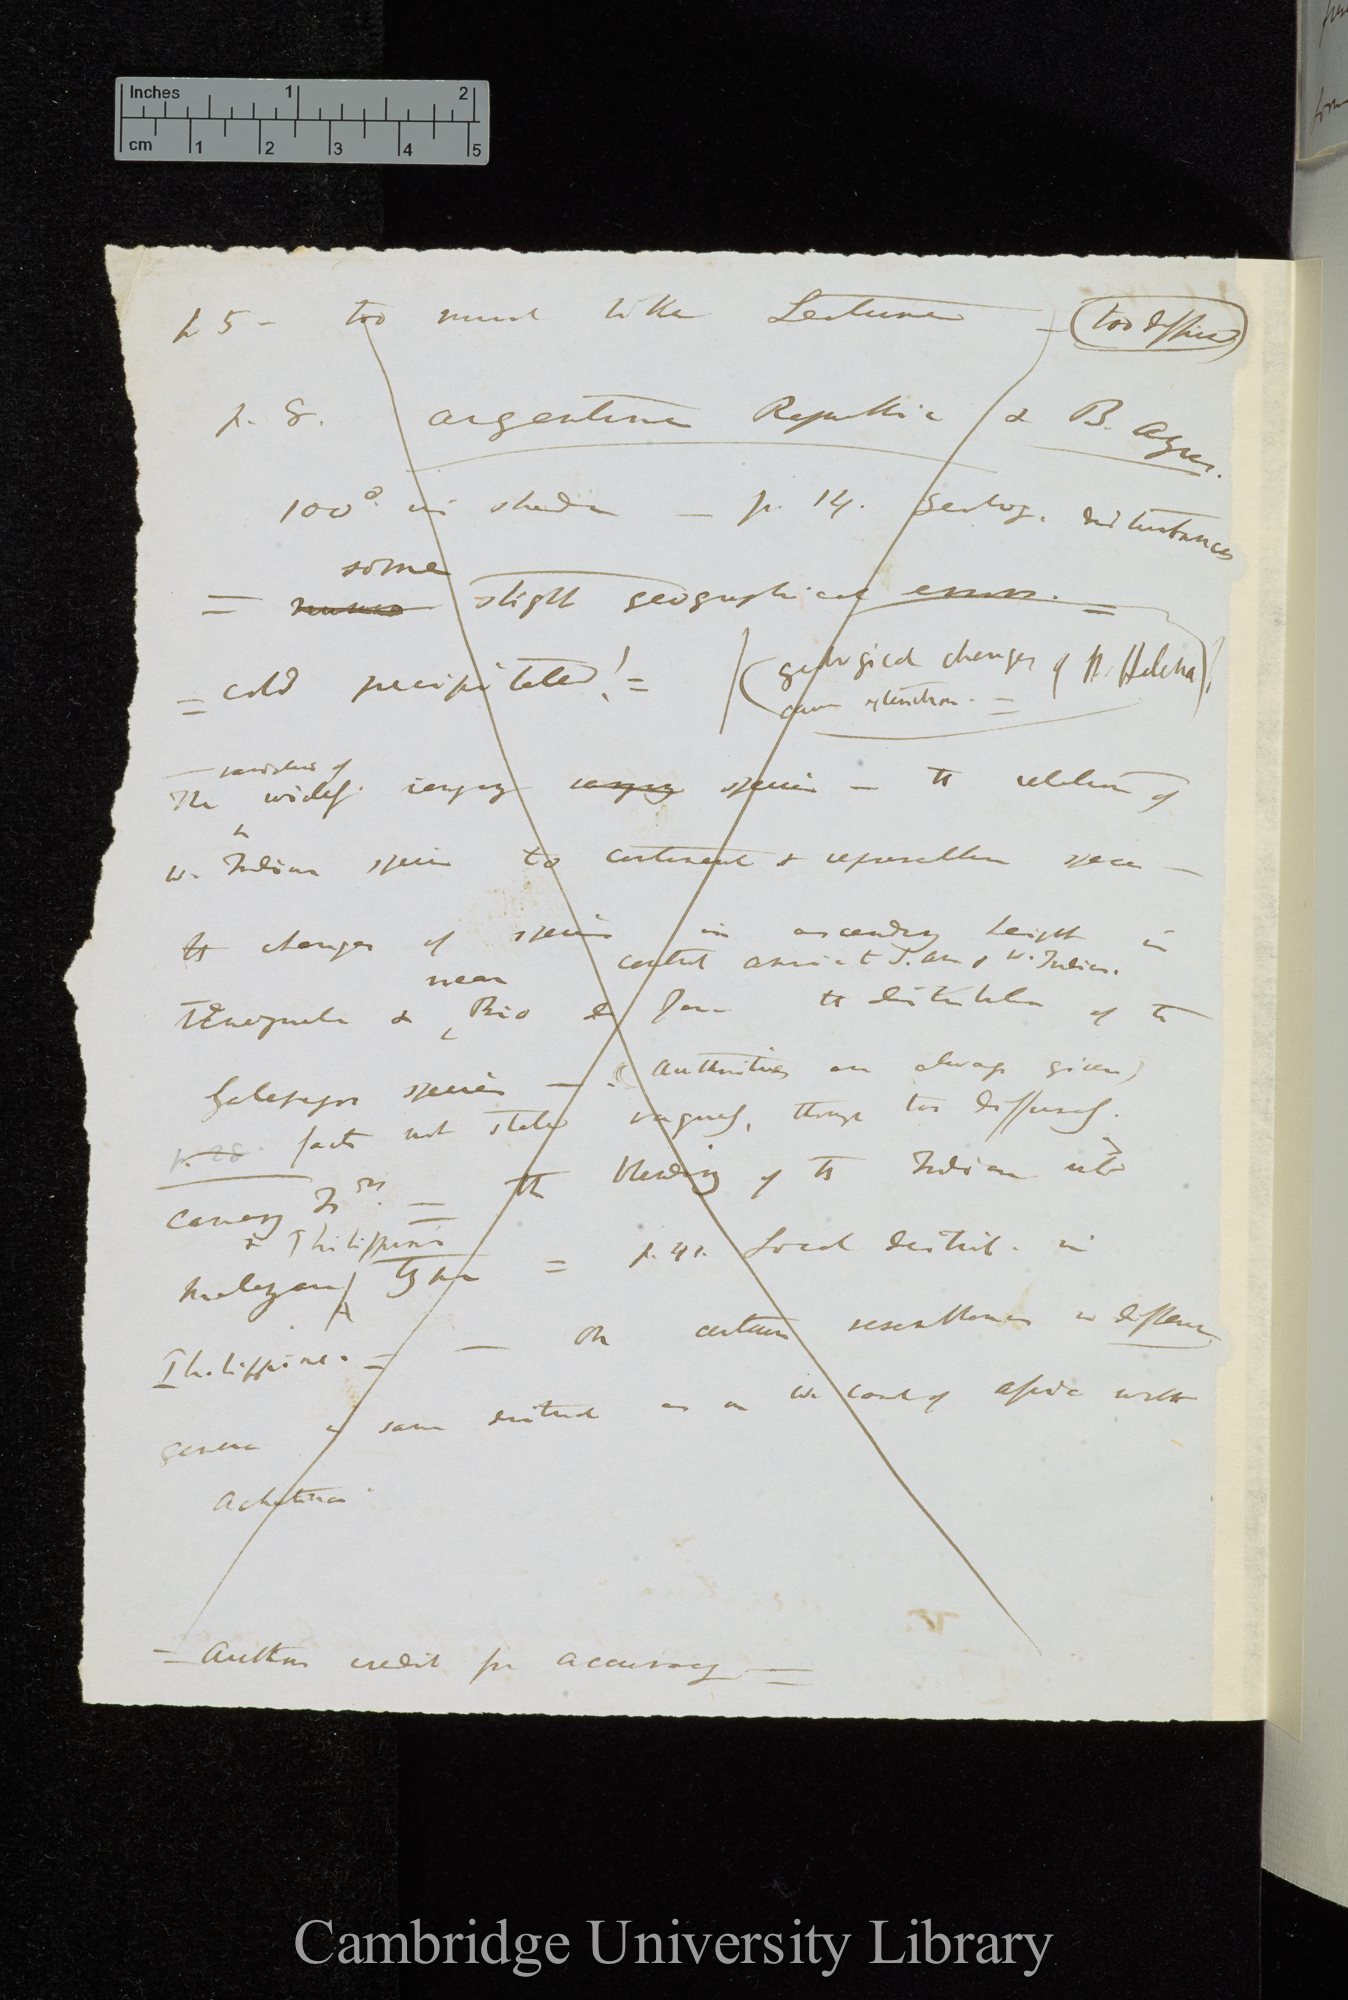 Inches 1 2
cm 1 2 3 4 5
p 5 - too much like Lecture - (too diffuse)
p. 8. Argentine Republic & B. Ayres.
100° in shade - p. 14. Geolog. disturbances
some
= slight geographical errors. =
= cold precipitated! = (geological changes of St. Helena)!
varieties of
The widely ranging ranging species - the relation of
W. Indian species to continent & representative species -
the changes of species in ascending height in
near contrast S. Am & W. Indies.
Venezuela & Rio de the distribution of the
Galapagos species - (authorities are always given)
p. 28 facts not stated vaguely, though too diffusely.
Canary Isds. = the blending of the Indian into
& Philippines
Malayan type = p. 41. Local distrib. in
Philippines. = - On certain resemblances in different
genera in same district as on W coast of Africa with
Achatina
= Author credit for accuracy =
Cambridge University Library